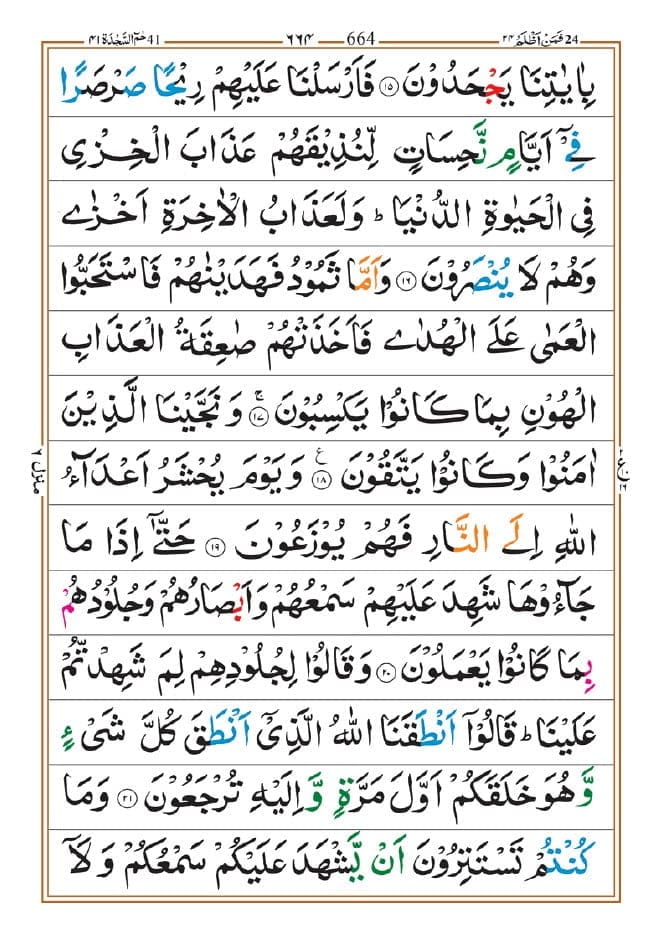 24 فَمَنْ اَظْلَمُ ٢٤ 664 ٦٦٤ 41 حٰمٓ السَّجْدَة ٤١
بِاٰيٰتِنَا يَجْحَدُوْنَ ١٥ فَاَرْسَلْنَا عَلَيْهِمْ رِيْحًا صَرْصَرًا
فِيْٓ اَيَّامٍ نَّحِسَاتٍ لِّنُذِيْقَهُمْ عَذَابَ الْخِزْيِ
فِي الْحَيٰوةِ الدُّنْيَا ؕ وَلَعَذَابُ الْاٰخِرَةِ اَخْزٰى
وَهُمْ لَا يُنْصَرُوْنَ ١٦ وَاَمَّا ثَمُوْدُ فَهَدَيْنٰهُمْ فَاسْتَحَبُّوا
الْعَمٰى عَلَى الْهُدٰى فَاَخَذَتْهُمْ صٰعِقَةُ الْعَذَابِ
الْهُوْنِ بِمَا كَانُوْا يَكْسِبُوْنَ ۚ ١٧ وَنَجَّيْنَا الَّذِيْنَ
اٰمَنُوْا وَكَانُوْا يَتَّقُوْنَ ١٨ ع وَيَوْمَ يُحْشَرُ اَعْدَآءُ
اللّٰهِ اِلَى النَّارِ فَهُمْ يُوْزَعُوْنَ ١٩ حَتّٰىٓ اِذَا مَا
جَآءُوْهَا شَهِدَ عَلَيْهِمْ سَمْعُهُمْ وَاَبْصَارُهُمْ وَجُلُوْدُهُمْ
بِمَا كَانُوْا يَعْمَلُوْنَ ٢٠ وَقَالُوْا لِجُلُوْدِهِمْ لِمَ شَهِدْتُّمْ
عَلَيْنَا ؕ قَالُوْٓا اَنْطَقَنَا اللّٰهُ الَّذِيْٓ اَنْطَقَ كُلَّ شَيْءٍ
وَّهُوَ خَلَقَكُمْ اَوَّلَ مَرَّةٍ وَّاِلَيْهِ تُرْجَعُوْنَ ٢١ وَمَا
كُنْتُمْ تَسْتَتِرُوْنَ اَنْ يَّشْهَدَ عَلَيْكُمْ سَمْعُكُمْ وَلَآ
منزل ٦